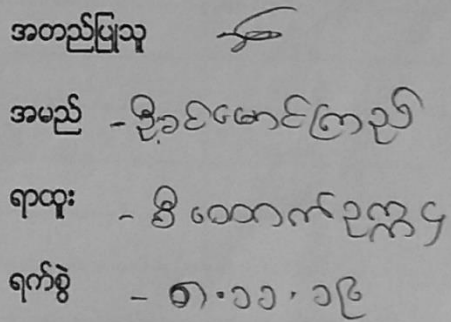 အတည်ပြုသူ
အမည် - ဦးခင်မောင်ကြည်
ရာထူး - ဒု ထောက်ဥက္ကဌ
ရက်စွဲ - ၈.၁၁.၁၆